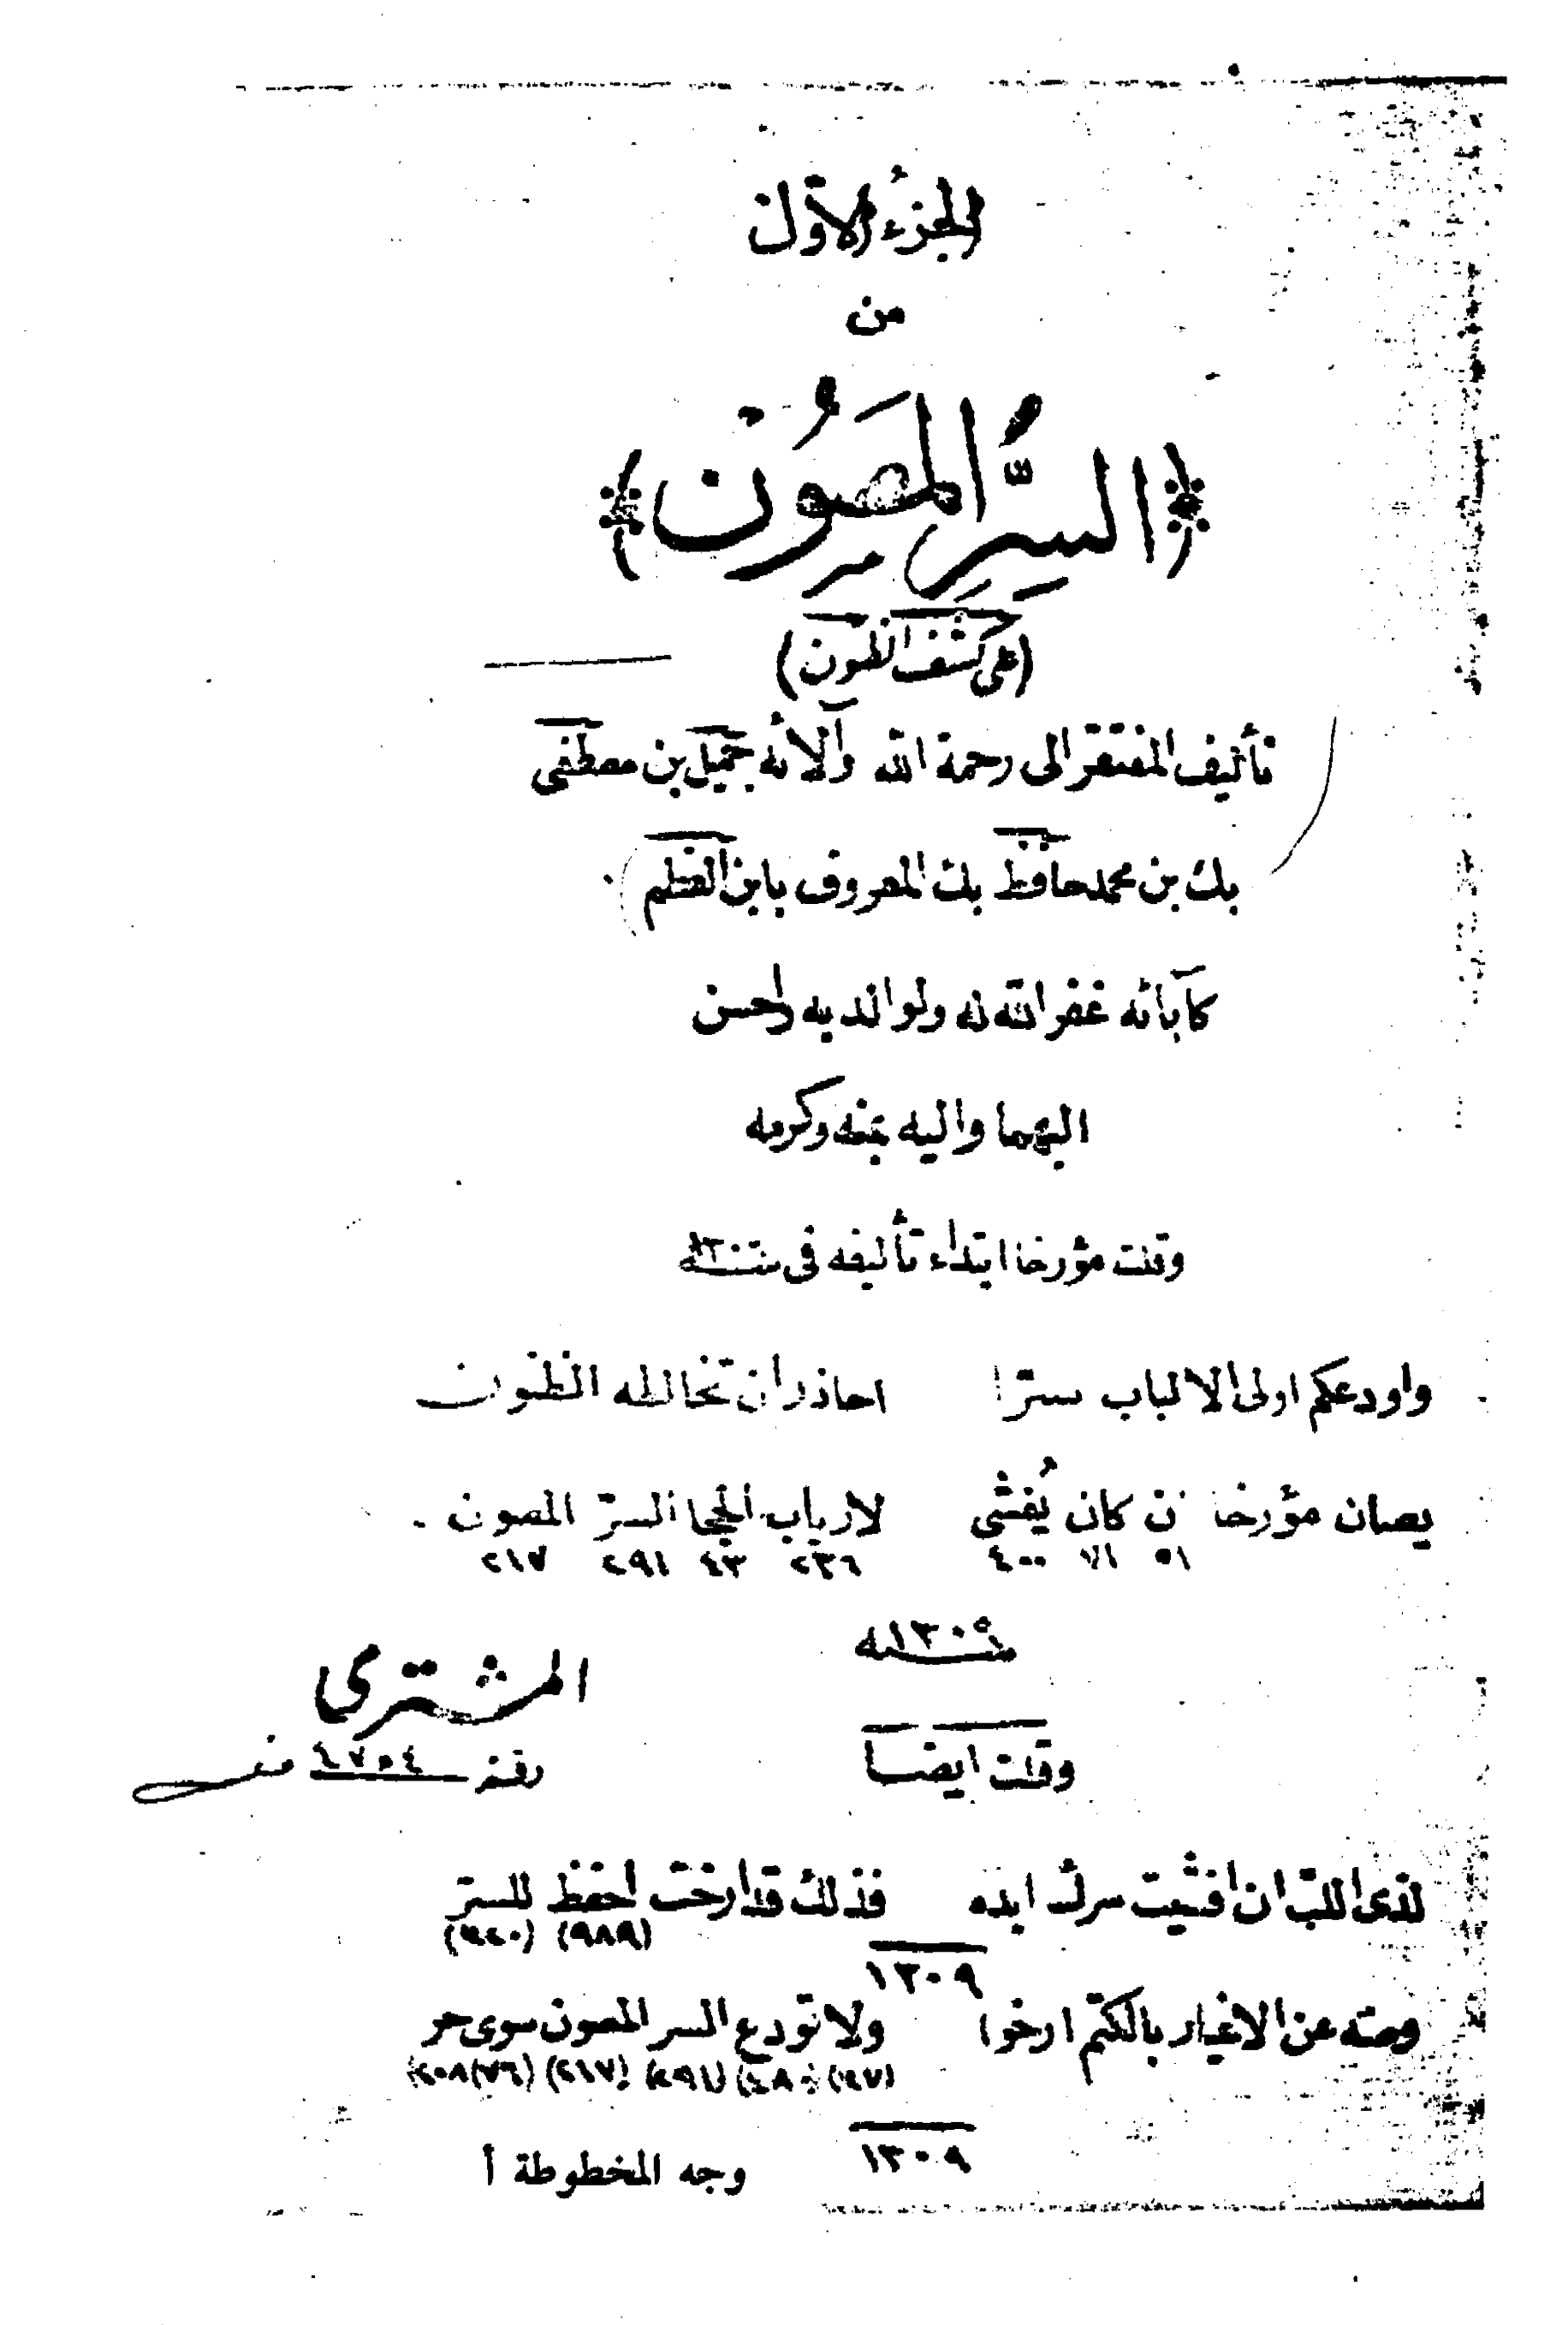 الجزء الأول
من
السِّرِّ المَصُوْن
(على كشف الظنون)
تأليف المفتقر الى رحمة الله وآلائه جميل بن مصطفى
بك بن محمد حافظ بك المعروف بابن العظم
كآبائه غفر الله له ولوالديه واحسن
اليهما واليه بمنه وكرمه
وقلت مؤرخا ابتداء تأليفه في سنة
واودعكم اولى الالباب سرّا احاذر ان تخالطه الظنون
يصان مؤرخا ن كان يُفشى لارباب الحجا السرّ المصون
٥١ ٧١ ٤٠٠ ٢٣٦ ٤٣ ٢٩١ ٢١٧
سنة ١٣٠٩
المشترى
رقم ٤٧٥٤
وقلت ايضا
لذى اللبّ ان افشيت سرك ابده فذلك قد ارخت احفظ للسرّ
(٩٨٩) (٣٢٠)
١٣٠٩
وصنه عن الاغيار بالكتم ارخوا ولا تودع السر المصون سوى حر
(٣٧) (٤٨٠) (٢٩١) (٢١٧) (٧٦) (٢٠٨)
١٣٠٩
وجه المخطوطة أ